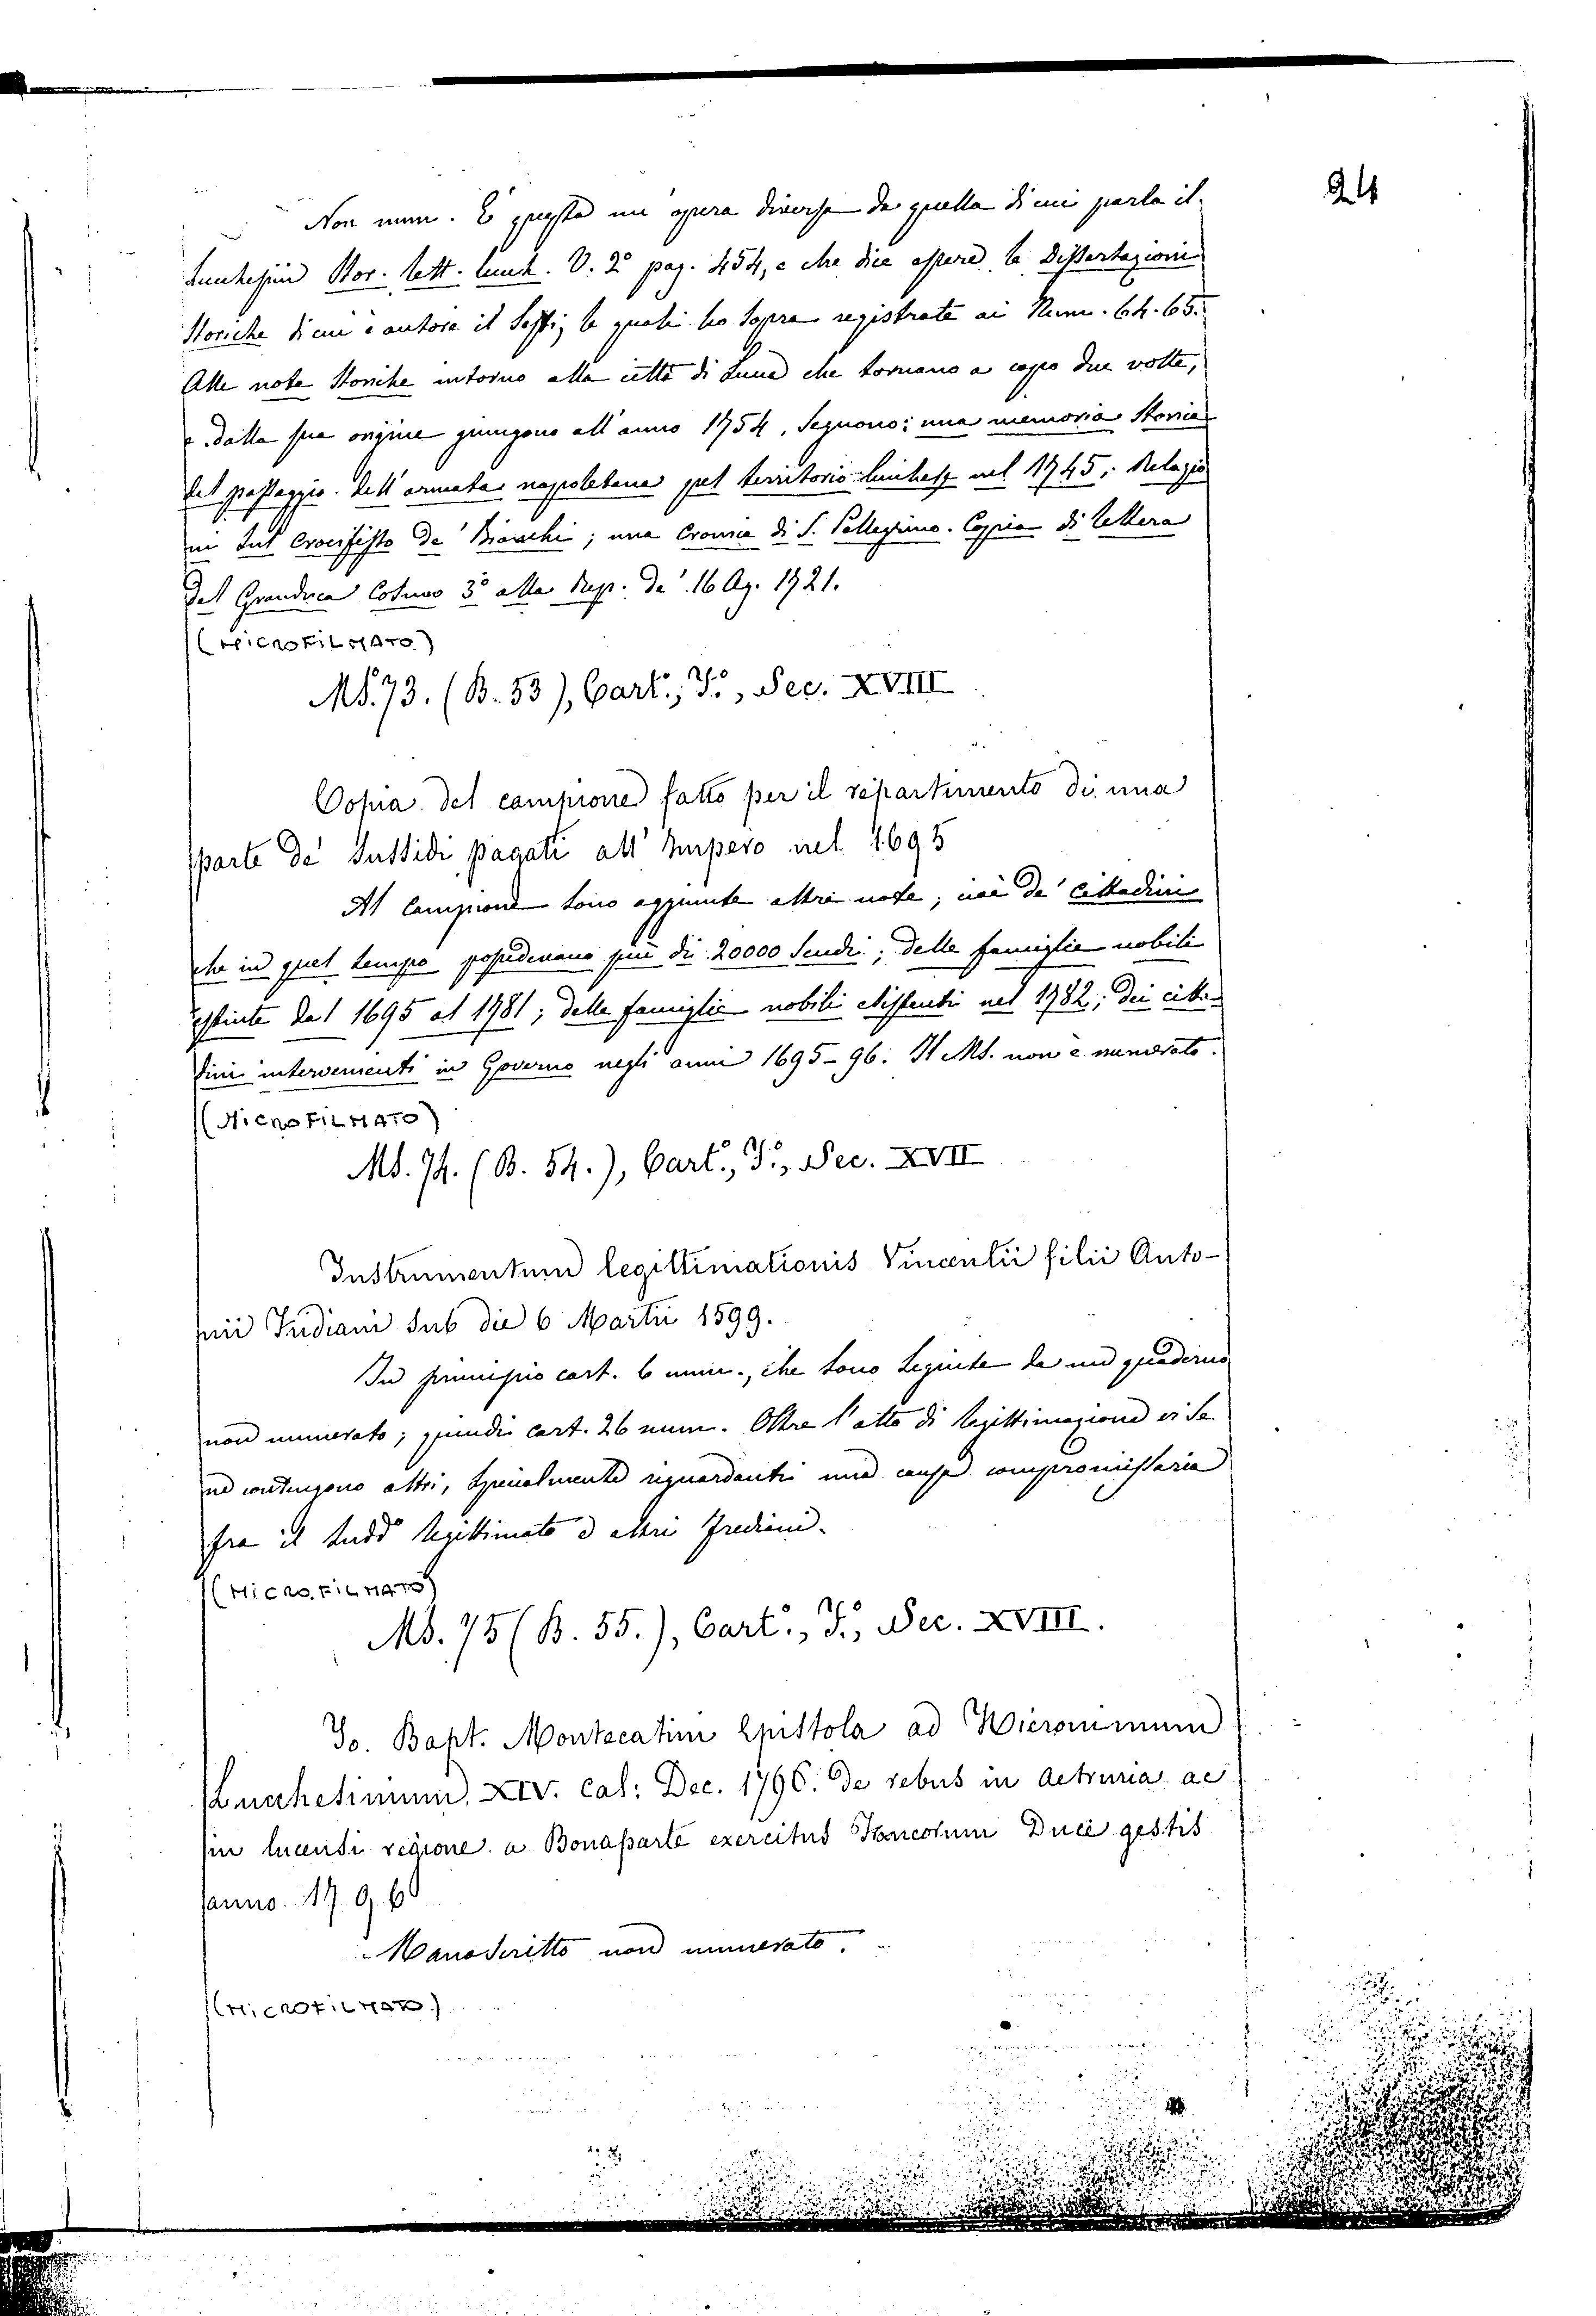 24
Non num. È questa un' opera diversa da quella di cui parla il
Lucchesini Stor. lett. lucch. V. 2° pag. 454, e che dice essere le Dissertazioni
Storiche di cui è autore il Sesti; le quali ho sopra registrate ai Num. 64. 65.
Alle note Storiche intorno alla città di Lucca che tornano a capo due volte,
e dalla sua origine giungono all' anno 1754, seguono: una memoria Storica
del passaggio dell' armata napoletana pel territorio lucchese nel 1745; Relazio
ni sul Crocifisso de' Bianchi; una Cronica di S. Pellegrino. Copia di lettera
del Granduca Cosimo 3° alla Rep. de' 16 Ag. 1721.
(MICROFILMATO)
MS. 73. (B. 53), Cart.°, F.°, Sec. XVIII
Copia del campione fatto per il repartimento di una
parte de' Sussidi pagati all' Impero nel 1695
Al Campione sono aggiunte altre note, cioè de' Cittadini
che in quel tempo possedevano più di 20000 Scudi; delle famiglie nobili
estinte dal 1695 al 1781; delle famiglie nobili esistenti nel 1782; dei citta-
dini intervenienti in Governo negli anni 1695-96. Il MS. non è numerato.
(MICROFILMATO)
MS. 74. (B. 54.), Cart.°, F.°, Sec. XVII
Instrumentum legittimationis Vincentii filii Anto-
nii Frediani sub die 6 Martii 1599.
In principio cart. 6 num., che sono seguite da un quaderno
non numerato; quindi cart. 26 num. Oltre l'atto di legittimazione vi se
ne contengono altri, specialmente riguardanti una causa compromissaria
fra il sudd° legittimato e altri Frediani.
(MICROFILMATO)
MS. 75 (B. 55.), Cart.°, F.°, Sec. XVIII.
Jo. Bapt. Montecatini Epistola ad Hieronimum
Lucchesinium, XIV. Cal: Dec. 1796. de rebus in Aetruria ac
in lucensi regione a Bonaparte exercitus Francorum Duce gestis
anno 1796
Manoscritto non numerato.
(MICROFILMATO)